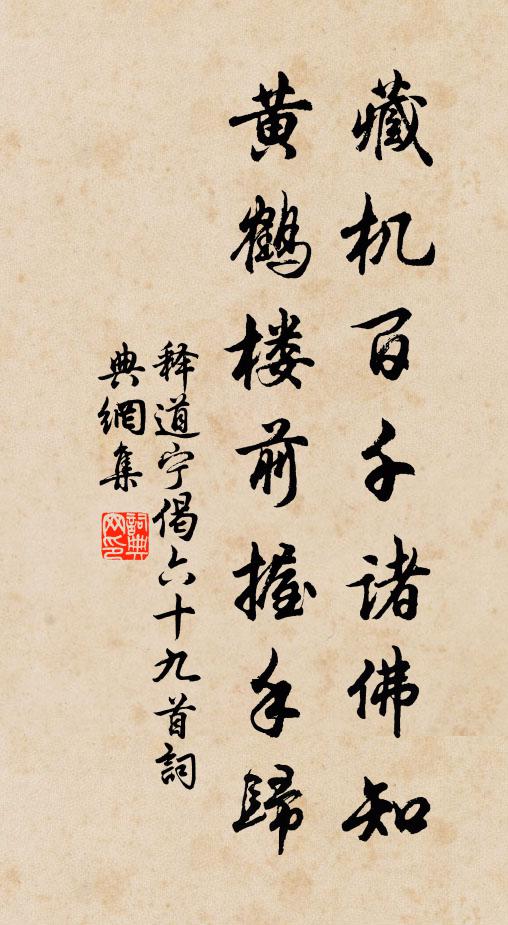 藏机百千诸佛知
黄鹤楼前握手歸
释道宁偈六十九首詞
典網集
詞典
网印